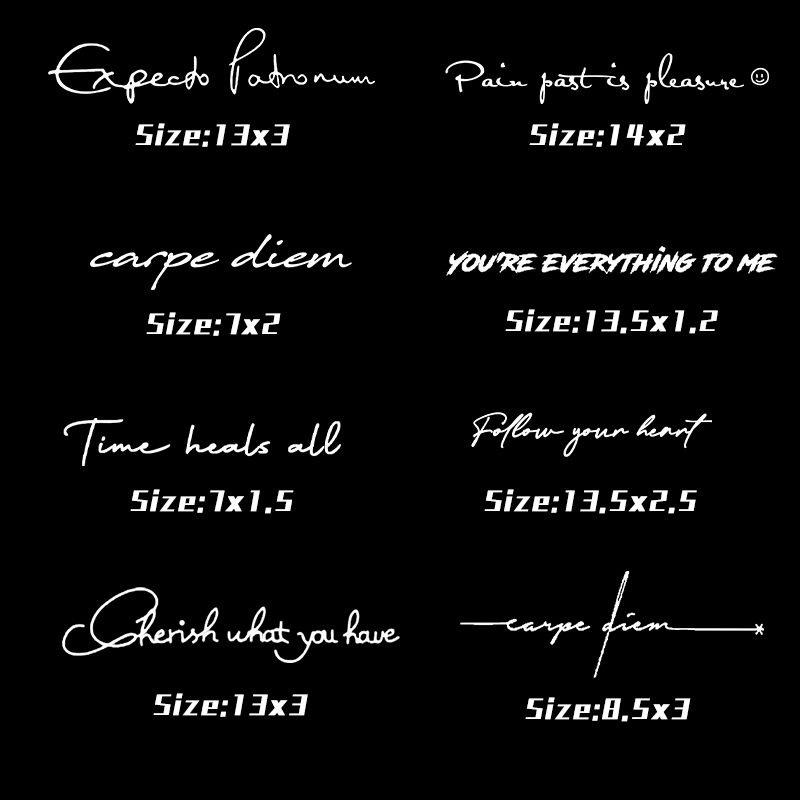 Expecto Patronum
Size:13x3
Pain past is pleasure☺
Size:14x2
carpe diem
Size:7x2
YOU'RE EVERYTHING TO ME
Size:13.5x1.2
Time heals all
Size:7x1.5
Follow your heart
Size:13.5x2.5
Cherish what you have
Size:13x3
carpe diem
Size:8.5x3